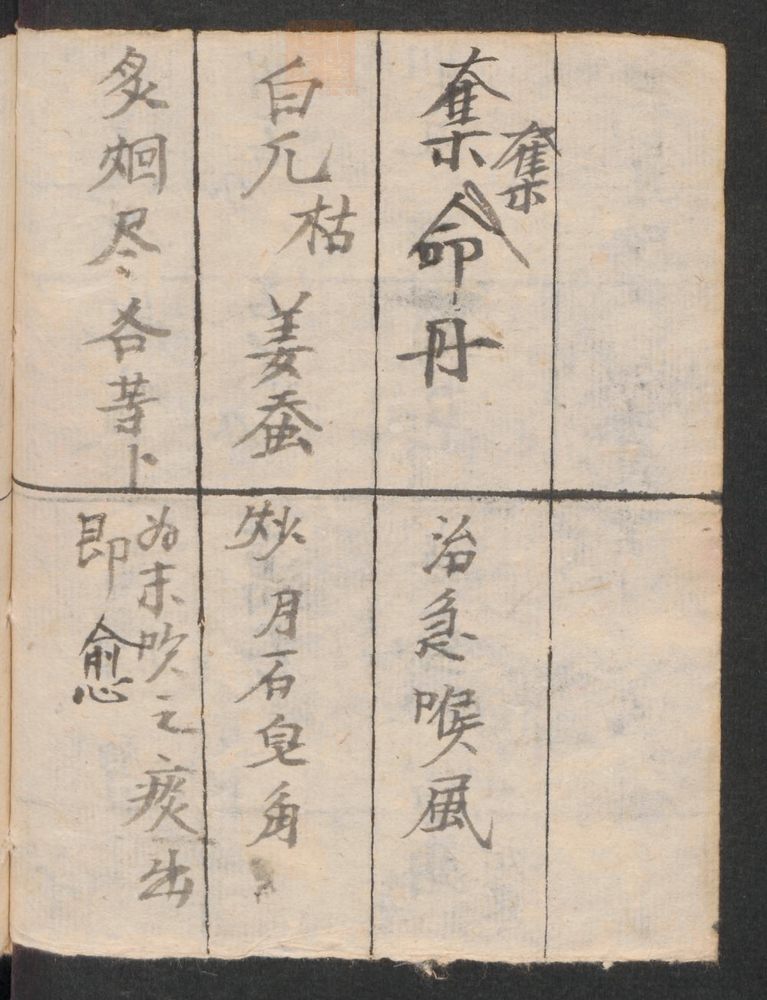 奪命丹
奪
治急喉風
白兀枯 姜蚕
炒月石皂角
炙烟尽各等卜
为末吹之痰出
即愈